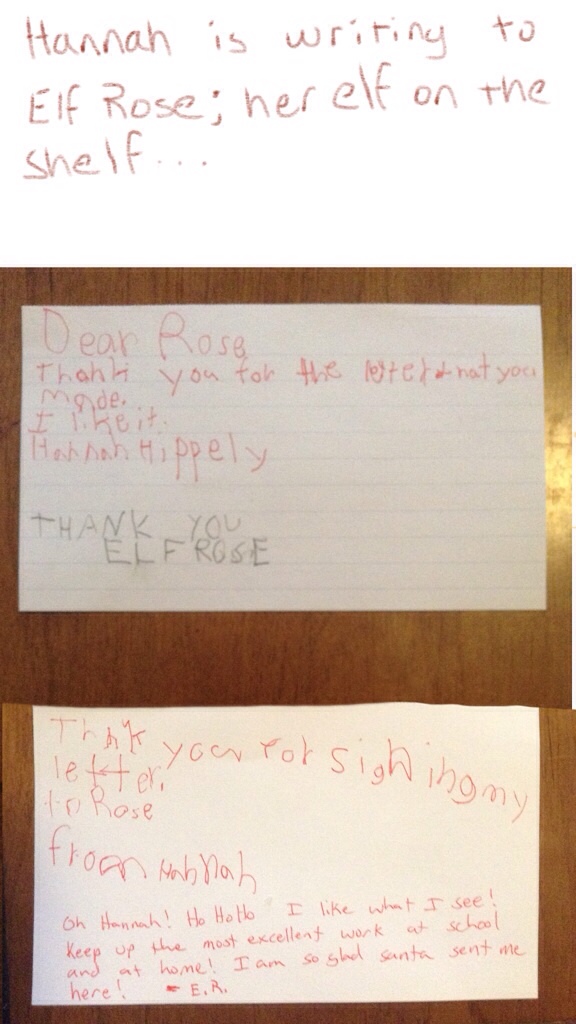 Hannah is writing to
Elf Rose; her elf on the
shelf...
Dear Rose
Thank you for the letter that you
made.
I like it.
Hannah Hippely
THANK YOU
ELF ROSE
Thnk you for sighing my
letter.
to Rose
from Hannah
Oh Hannah! Ho HoHo I like what I see!
Keep up the most excellent work at school
and at home! I am so glad santa sent me
here! - E.R.